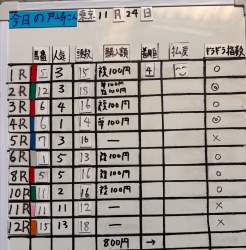 今日のアムさん 東京 11月24日
馬番 人気 頭数 購入額 着順 払戻 ドキドキ指数
1R 5 3 15 複100円 4 ○
2R 12 3 18 複100円 ◎
3R 6 4 16 複100円 ○
4R 6 1 14 単100円 ◎
5R 7 3 16 — ×
6R 1 5 13 複100円 ○
8R 5 5 16 複100円 ○
10R 11 2 16 複100円 ○
11R 11 11 12 — ×
12R 15 13 18 — ×
800円 →